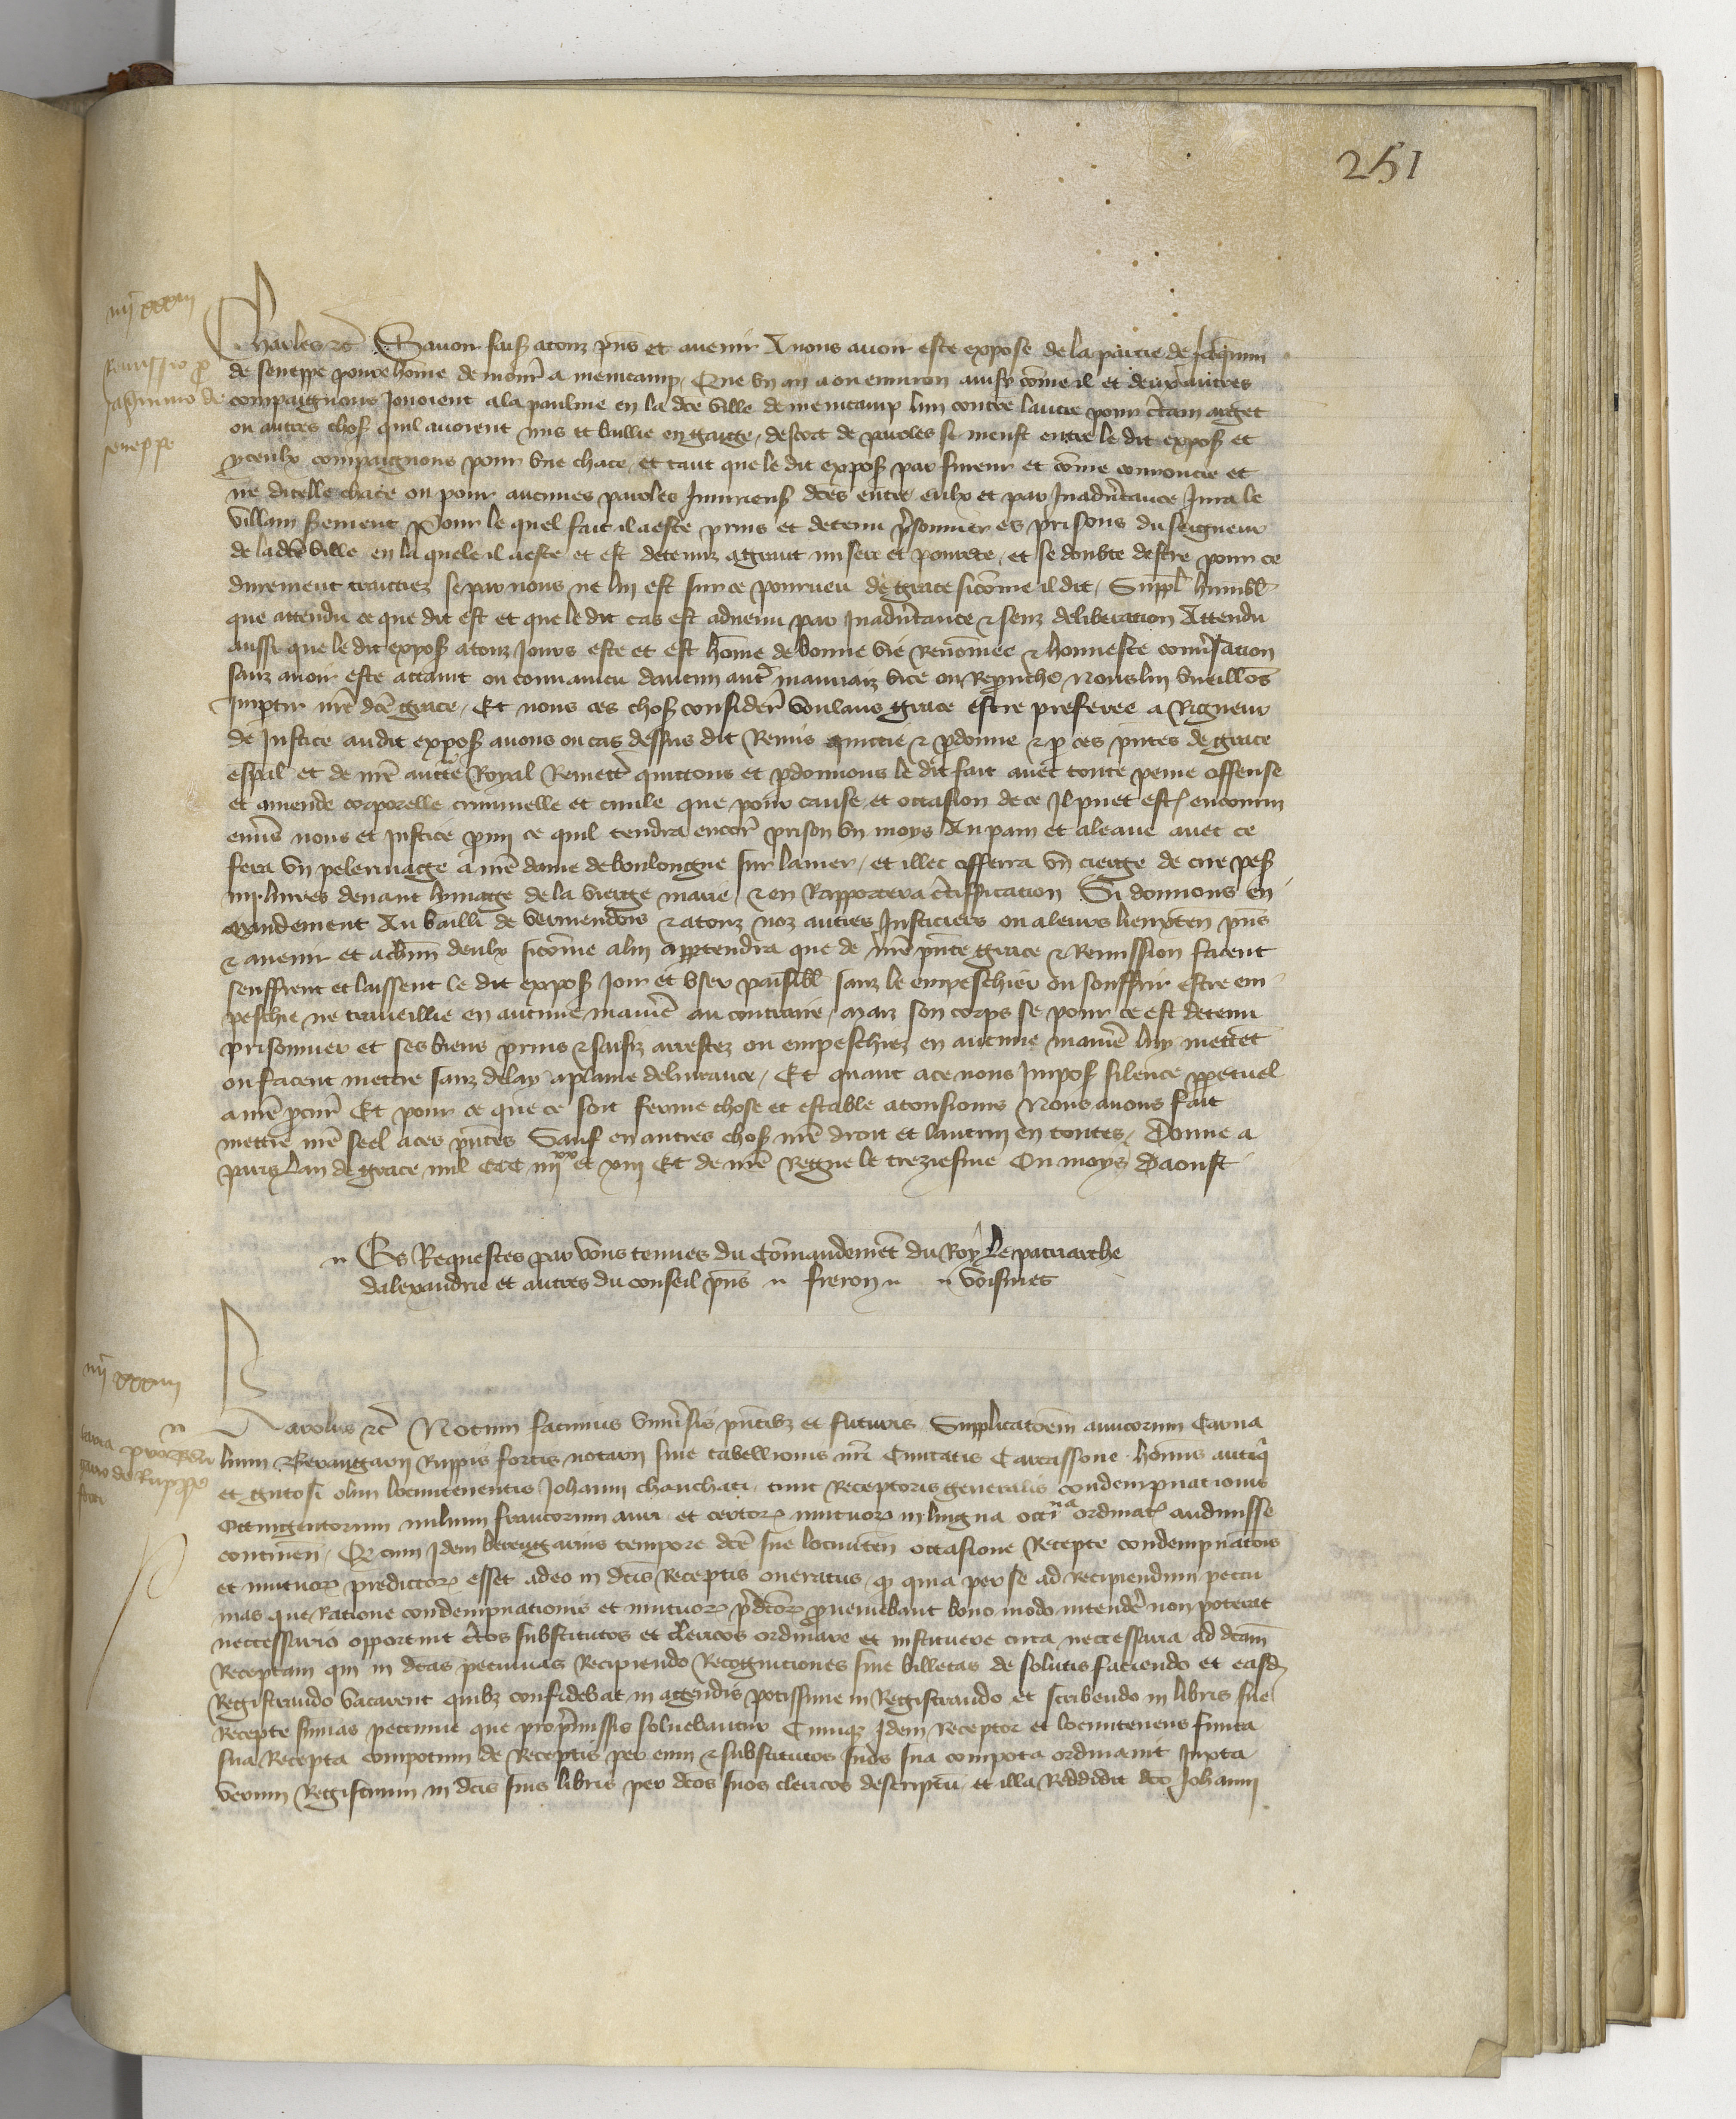 251
iiii xxxiii
Remissio p
Jaquino de
seneppe
Charles etc Savoir fais atouz pns et avenir A nous avoir este expose de la partie de Jaquinin
de seneppe povre home de monr a menicamp Que un an a ou environ ainsi come il et deux autres
compaignons Jouoient a la paulme en la dce ville de menicamp lun contre lautre pour ctain arget
ou autres chos quil avoient mis et baillie en gaige, descort de paroles se meust entre le dit expos et
yceulx compaignons pour une chace, et tant que le dit expos par fureur et come couroucie et
ire dicelle chace ou pour aucunes paroles Injurieus dces entre eulx et par Inadvtance Jura le
villain serement Pour le quel fait il a este prins et detenu prsonnier es prisons du seigneur
de la dce ville en la quele il a este et est detenuz a grant misere et povrete, et se doubte destre pour ce
durement traictiez se par nous ne lui est sur ce pourveu de grace sicome il dit, Suppl humbl
que attendu ce que dit est et que le dit cas est advenu par Inadvtance & senz deliberation Attendu
aussi que le dit expos a touz Jours este et est home de bonne vie Renomee & honneste conversation
sanz avoir este attaint ou convaincu daucun autr mauvaiz vice ou Reprouche Nous lui vueillos
Impartir nre dce grace, Et nous ces chos considere voulans grace estre preferee a Rigueur
de Justice au dit expos avons ou cas dessus dit Remis quictie & pdonne & p ces pntes de grace
espal et de nre aucte Royal Remetts quictons et pdonnons le dit fait avec toute peine offense
et amende corporelle criminelle et civile que pour cause et occasion de ce Il puet estre encouru
envs nous et Justice pmi ce quil tendra encor prison un moys Au pain et a leaue avec ce
fera un pelerinage a nre dame de boulongne sur la mer, et illec offerra un cierge de cire pes
iiii livres devant lymage de la vierge marie & en Rapportera ctiffication Si donnons en
mandement Au bailli de vermendois & a touz noz autres Justiciers ou a leurs lieuxten pns
& avenir et a chun deulx sicome a lui appartendra que de nre pnte grace & Remission facent
seuffrent et laissent le dit expos Joir et user paisibl sanz le empeschier ou souffrir estre em
peschie ne traveillie en aucune manie au contraire, Maiz son corps se pour ce est detenu
prisonnier et ses biens prins & saisiz arrestez ou empeschiez en aucune manie luy mettet
ou facent mettre sanz delay a plaine delivrance, Et quant a ce nous Impos silence ppetuel
a nre pcur Et pour ce que ce soit ferme chose et estable a tousiours Nous avons fait
mettre nre seel a ces pntes Sauf en autres chos nre droit et lautrui en toutes, Donne a
paris Lan de grace mil CCC iiii xx et xiii Et de nre Regne le treziesme Ou moys Daoust
Es Requestes par vous tenues du Comandemet du Roy Le patriarche
dalexandrie et autres du conseil pns freron voisines
iiii xxxiiii
p beren
gario de Ruppe
forti
Karolus etc Notum facimus univsis pntibz et futuris Supplicatoem amicorum Carna
lium Berengarii Ruppis fortis notarii sive tabellionis nri Civitatis Carcassone hominis antiqi
et gutosi olim locumtenentis Johanni chauchati tunc Receptoris generalis condempnationis
Octingentorum milium francorum auri et certor mutuor in lingua occitana ordinat audivisse
continen, Q cum Idem berengarius tempore dce sue locumten occasione Recepte condempnatois
et mutuor predictor esset adeo in dcis Receptis oneratus q quia per se ad Recipiendum pecu
nias que Ratione condempnationis et mutuor pdcor pveniebant bono modo intendere non poterat
neccessario opportuit ctos substitutos et clericos ordinare et instituere circa neccessaria ad dcam
Receptam qui in dcas pecunias Recipiendo Recogniciones sive billetas de solutis faciendo et easd
Registrando vacarent quibz confidebat in agendis potissime in Registrando et scribendo in libris sue
Recepte sumas pecunie que pro pmissis solvebantur Cumq Idem Receptor et locumtenens finita
sua Recepta compotum de Receptis per eum & substitutos suos sua compota ordinavit Juxta
verum Registrum in dcis suis libris per dcos suos clericos descriptu et illa Reddidit dco Johanni